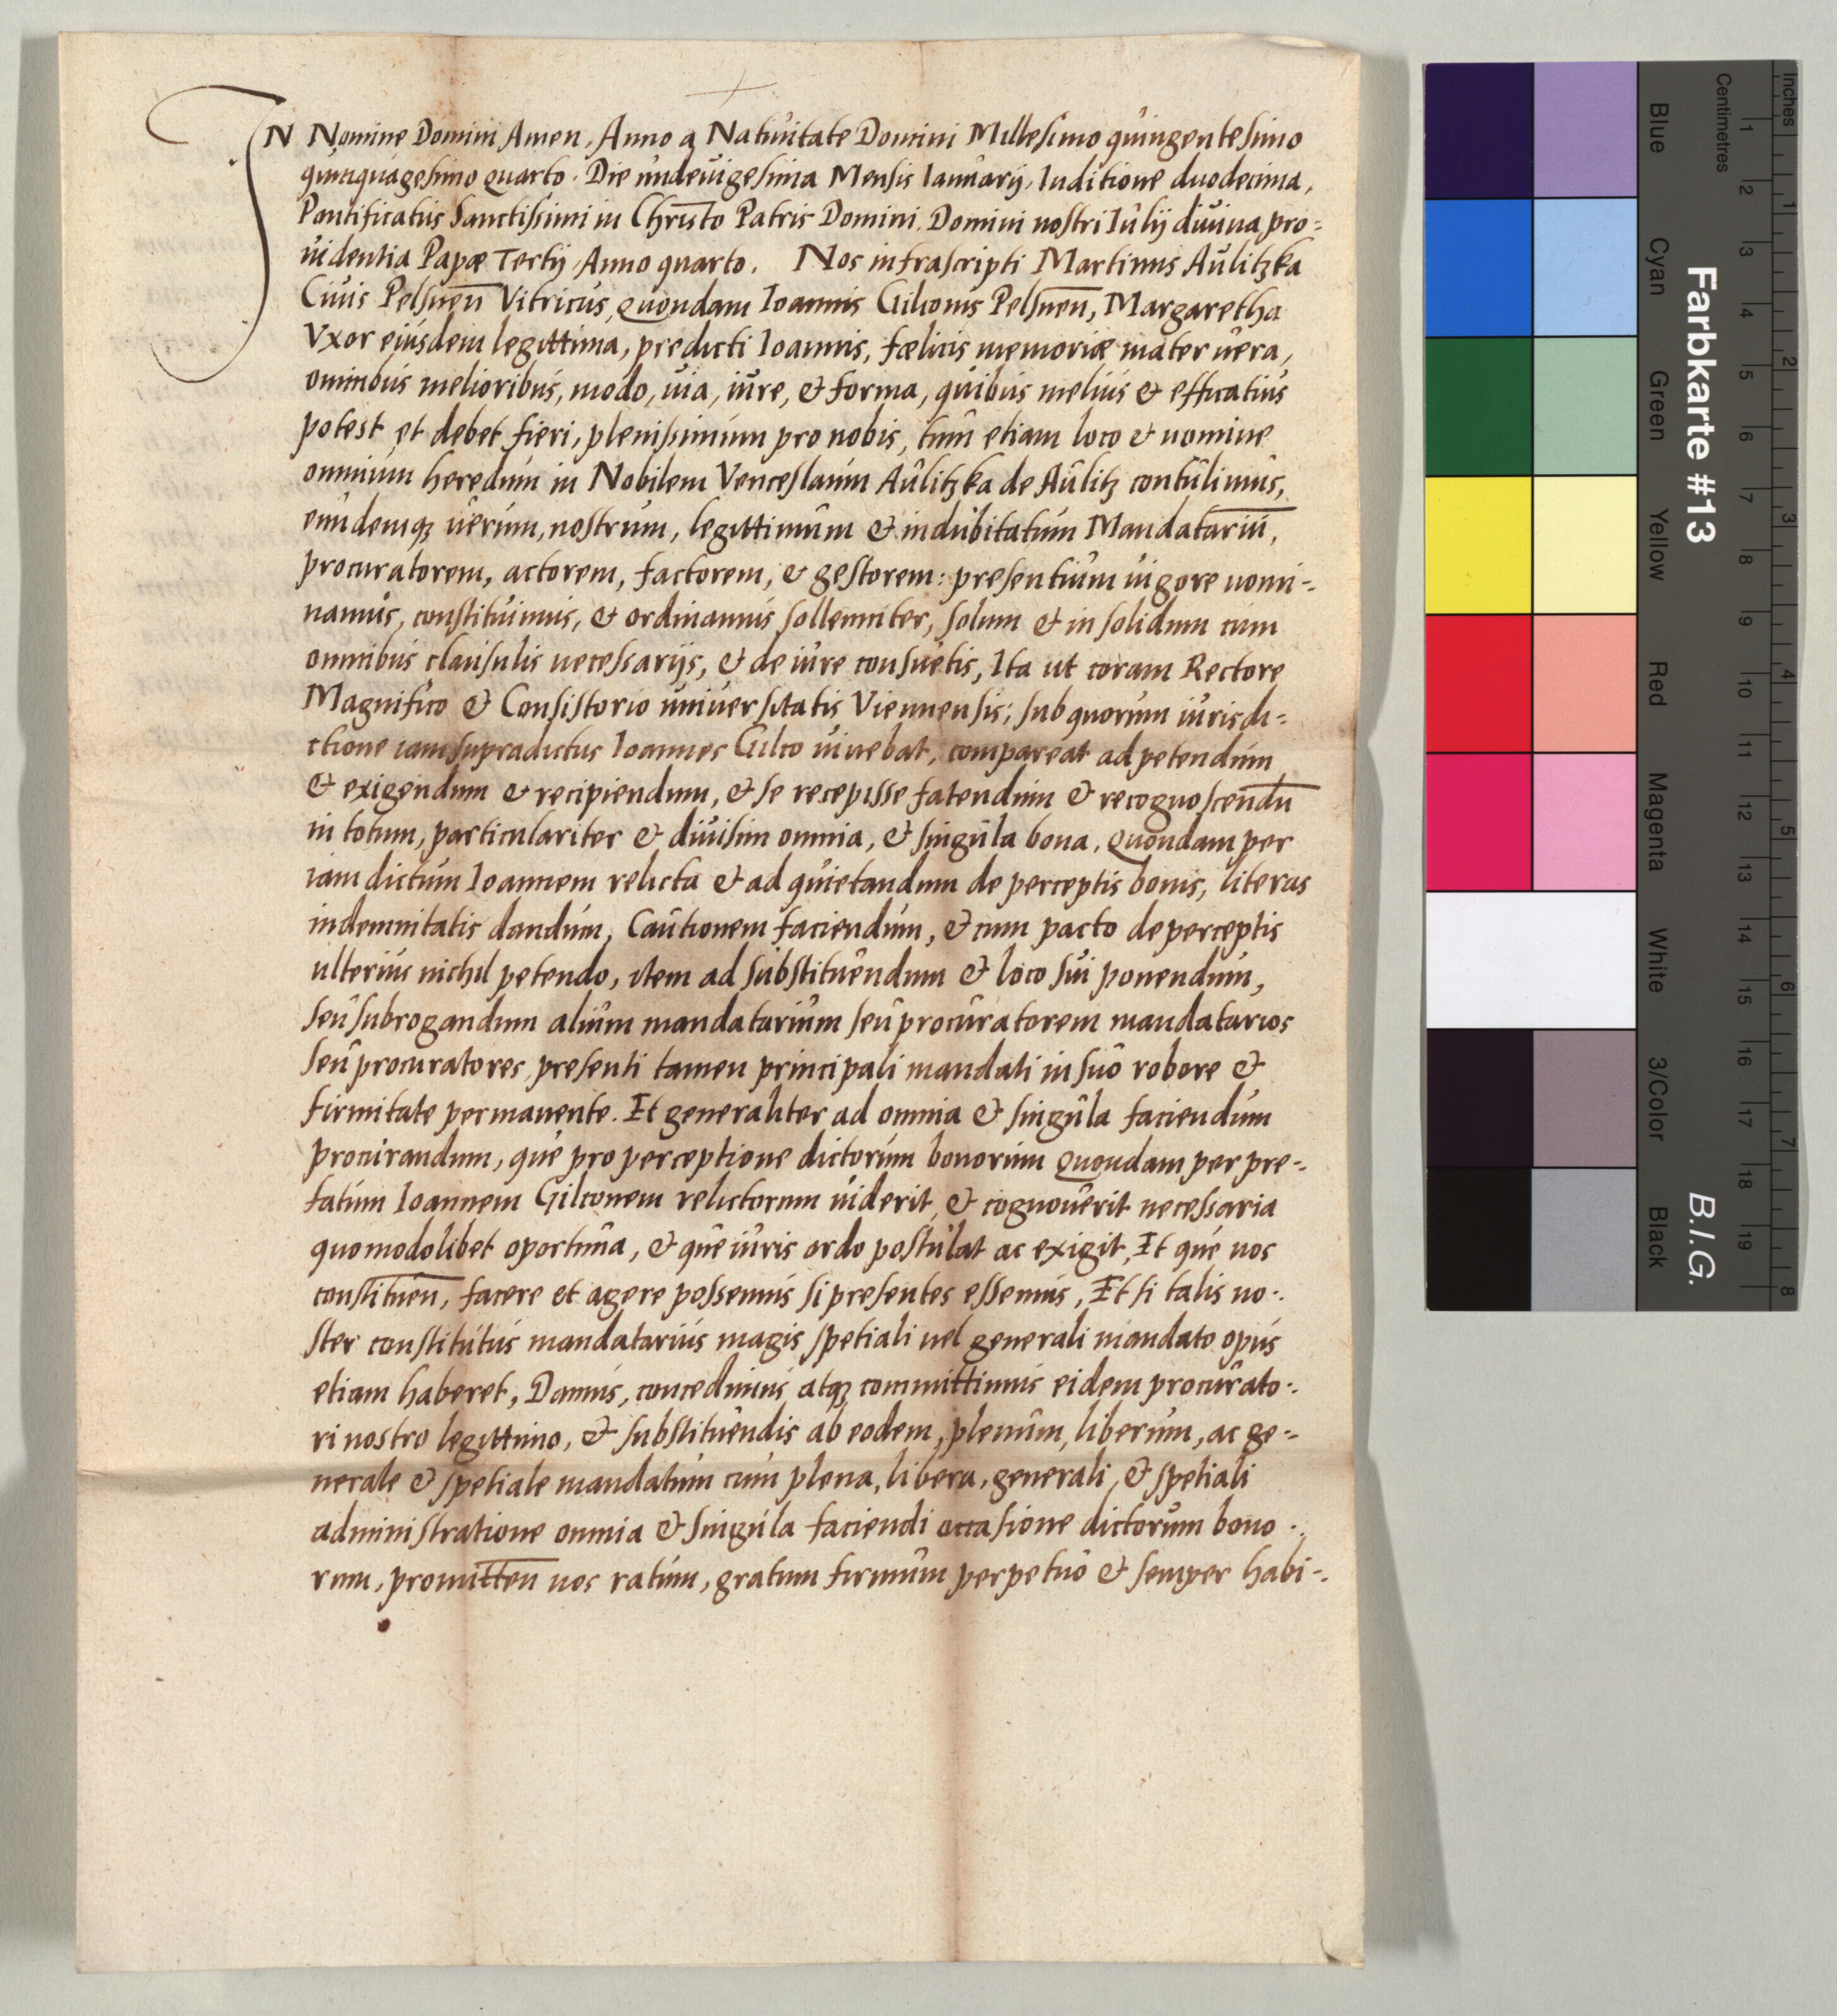 IN Nomine Domini Amen. Anno a Natiuitate Domini Millesimo quingentesimo
quinquagesimo quarto. Die undeuigesima Mensis Ianuarij, Inditione duodecima,
Pontificatus Sanctissimi in Christo Patris Domini, Domini nostri Iulij diuina pro=
uidentia Papæ Tertij, Anno quarto. Nos infrascripti Martinus Aulitzka
Ciuis Pelsnen̄ Vitricus, quondam Ioannis Gilconis Pelsnen̄, Margaretha
Vxor eiusdem legittima, predicti Ioannis, fœlicis memoriæ mater uera,
omnibus melioribus, modo, uia, iure, & forma, quibus melius & efficatius
potest et debet fieri, plenissimum pro nobis, tum etiam loco & nomine
omnium heredum in Nobilem Venceslaum Aulitzka de Aulitz contulimus,
eundemq; uerum, nostrum, legittimum & indubitatum Mandatariū,
procuratorem, actorem, factorem, & gestorem: presentium uigore nomi-
namus, constituimus, & ordinamus sollemniter, solum & in solidum cum
omnibus clausulis necessarijs, & de iure consuetis, Ita ut coram Rectore
Magnifico & Consistorio uniuersitatis Viennensis; sub quorum iurisdi=
ctione iam supradictus Ioannes Gilco uiuebat, compareat ad petendum
& exigendum & recipiendum, & se recepisse fatendum & recognoscendū
in totum, particulariter & diuisim omnia, & singula bona, quondam per
iam dictum Ioannem relicta & ad quietandum de perceptis bonis, literas
indemnitatis dandum, Cautionem faciendum, & cum pacto de perceptis
ulterius nichil petendo, item ad substituendum & loco sui ponendum,
seu subrogandum alium mandatarium seu procuratorem mandatarios
seu procuratores, presenti tamen principali mandati in suo robore &
firmitate permanente. Et generaliter ad omnia & singula faciendum
procurandum, que pro perceptione dictorum bonorum quondam per pre-
fatum Ioannem Gilconem relictorum uiderit, & cognouerit necessaria
quomodolibet oportuna, & que iuris ordo postulat ac exigit, Et que nos
constituen̄, facere et agere possemus si presentes essemus, Et si talis no-
ster constitutus mandatarius magis spetiali uel generali mandato opus
etiam haberet, Damus, concedimus atq; committimus eidem procurato-
ri nostro legittimo, & substituendis ab eodem, plenum, liberum, ac ge-
nerale & spetiale mandatum cum plena, libera, generali, & spetiali
administratione omnia & singula faciendi occasione dictorum bono-
rum, promitten̄ nos ratum, gratum firmum perpetuo & semper habi-
Farbkarte #13
B.I.G.
Blue
Cyan
Green
Yellow
Red
Magenta
White
3/Color
Black
Centimetres
1 2 3 4 5 6 7 8 9 10 11 12 13 14 15 16 17 18 19
Inches
1 2 3 4 5 6 7 8